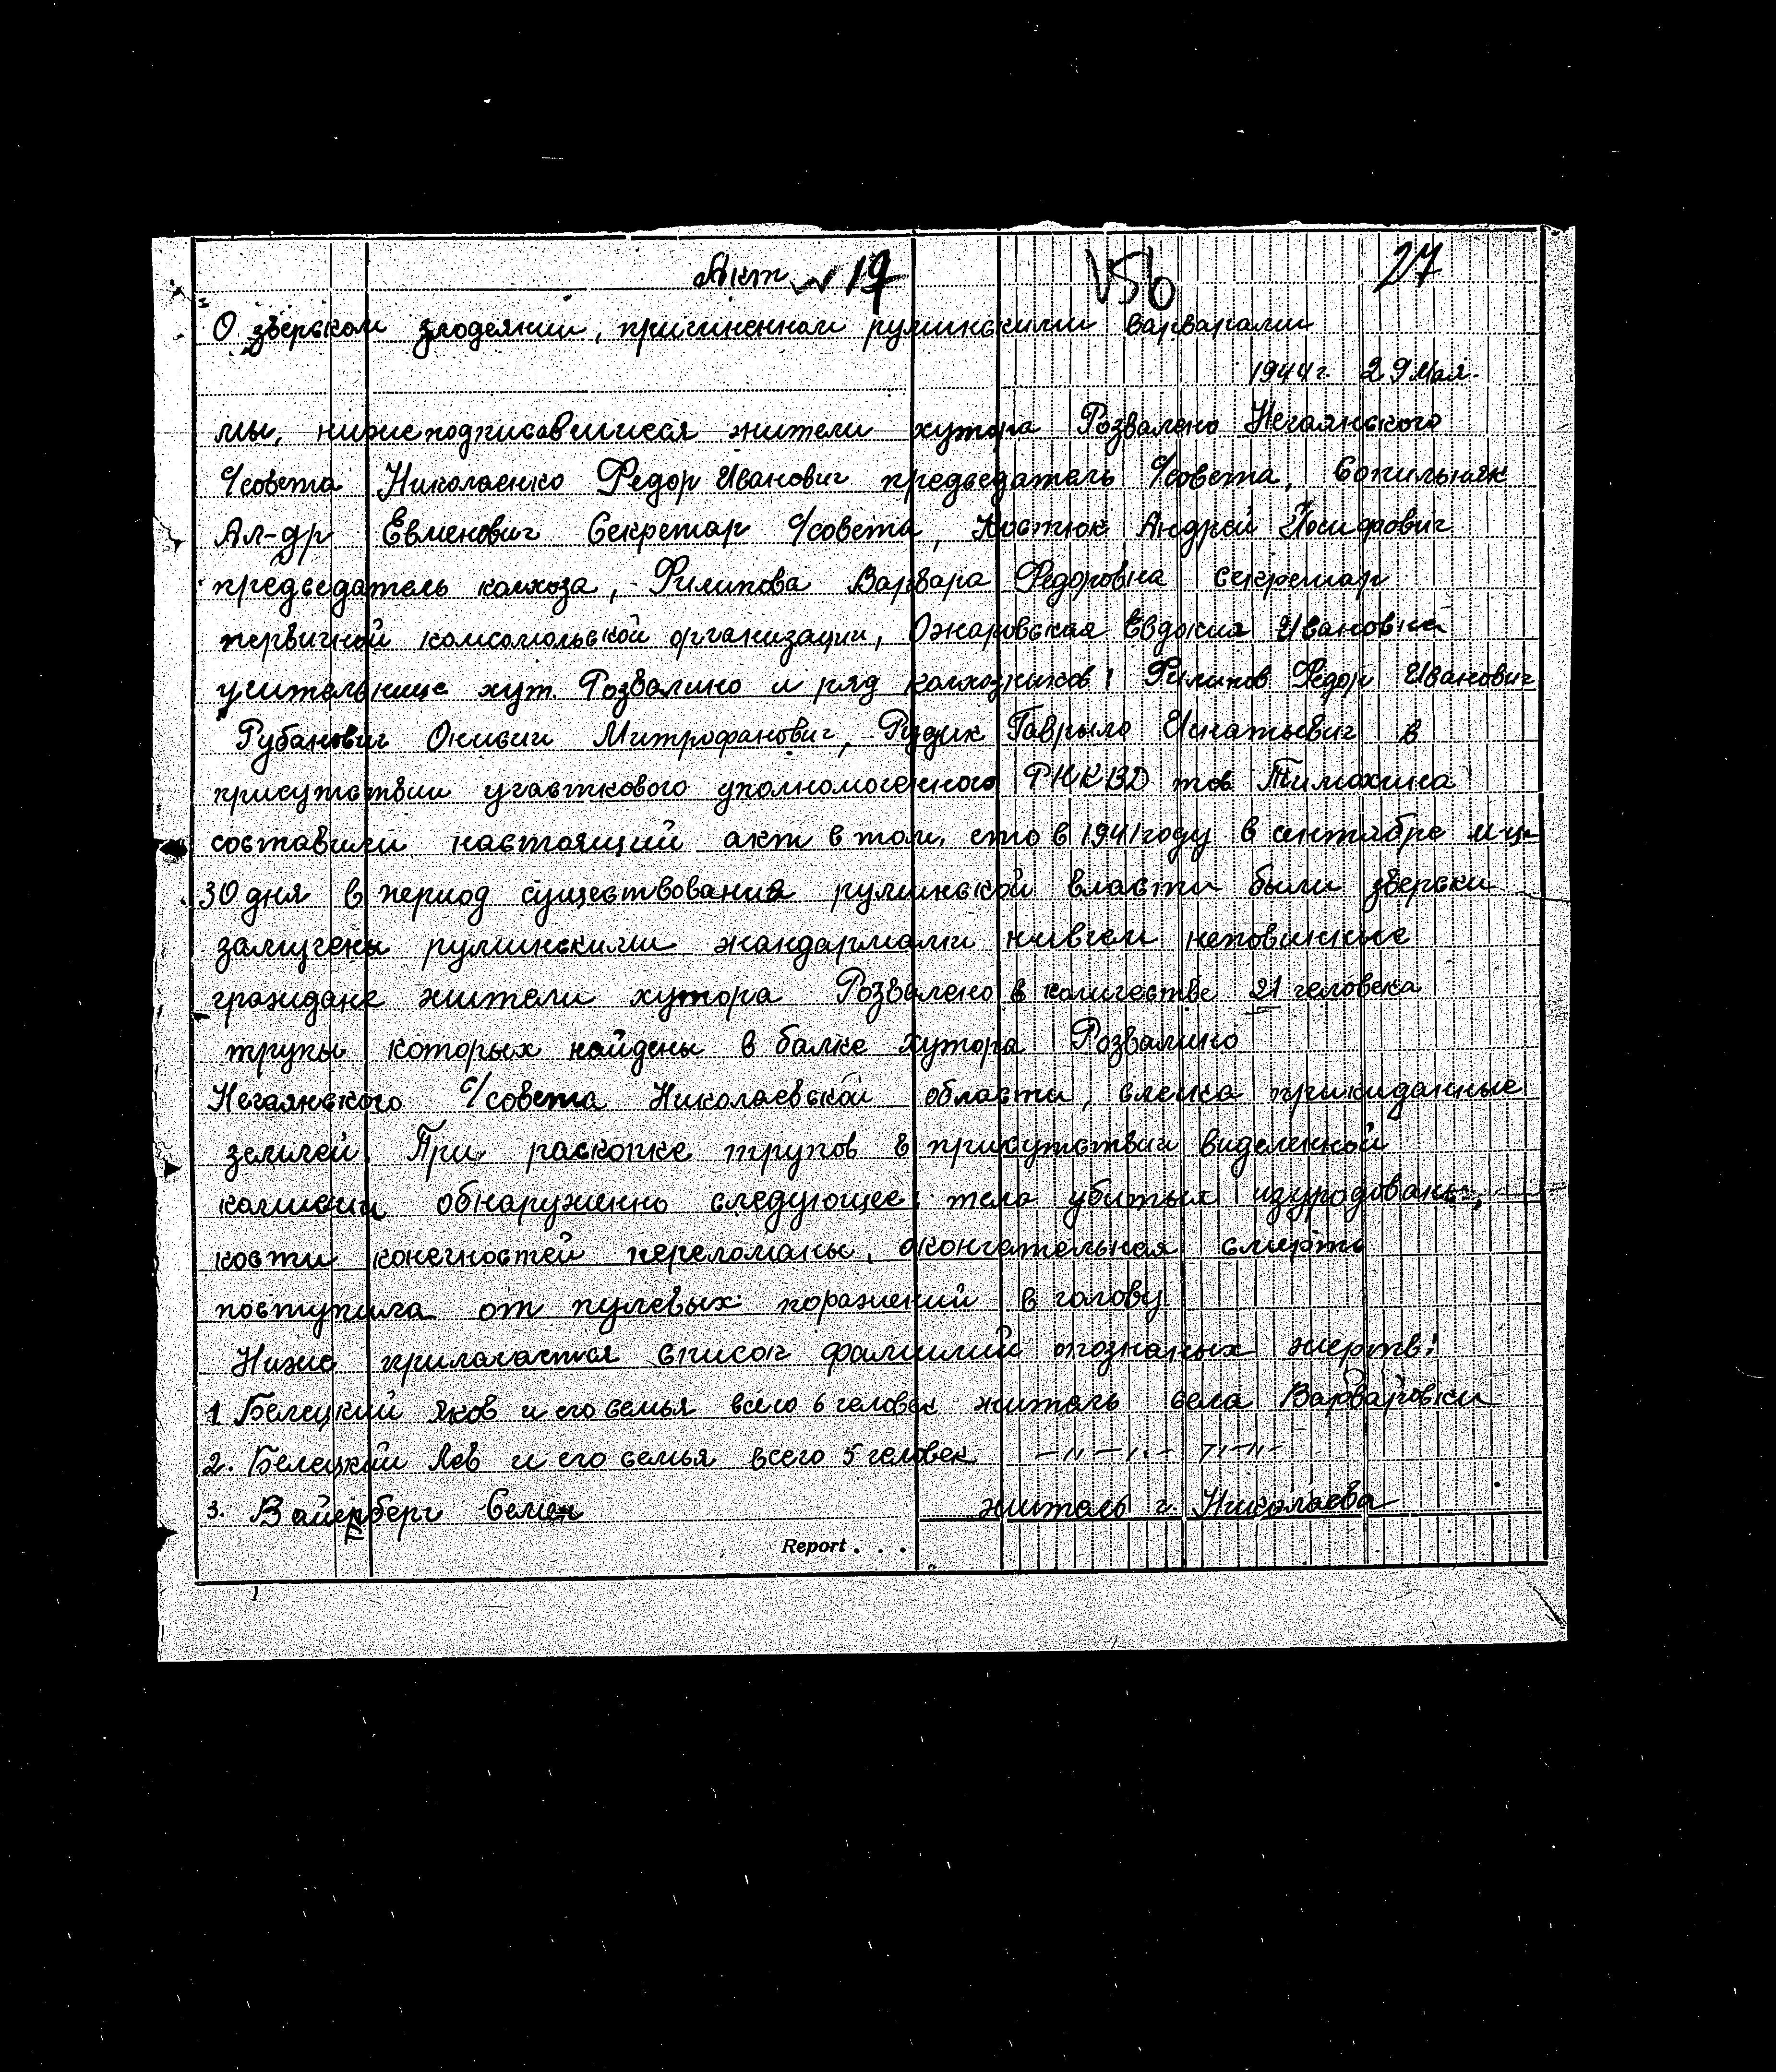 Акт № 19 156 27
О зверском злодеянии, причиненном румынскими варварами
1944 г. 29 Мая.
мы, нижеподписавшиеся жители хутора Розвалено Нечаянского
с/совета Николаенко Федор Иванович председатель с/совета, Сопильняк
Ал-др Евменович Секретар с/совета, Костюк Андрей Иосифович
председатель колхоза, Филипова Варвара Федоровна секретар
первичной комсомольской организации, Ожаровская Евдокия Ивановна
учительнице хут. Розвалино и ряд колхозников: Филипов Федор Иванович
Рубанович Онисии Митрофанович, Рудик Гаврыло Игнатьевич в
присутствии участкового уполномоченного РНКВД тов Тимохина
составили настоящий акт в том, что в 1941 году в сентябре м-це
30 дня в период существования румынской власти были зверски
замучены румынскими жандармами нивчем неповинные
граждане жители хутора Розвалено в количестве 21 человека
трупы которых найдены в балке хутора Розвалино
Нечаянского с/совета Николаевской области, слегка прикиданные
землей. При раскопке трупов в присутствии виделенной
комиссии обнаруженно следующее: тела убитых изуродованы,
кости конечностей переломаны, окончательная смерть
поступила от пулевых поражений в голову
Ниже прилагается список фамилий опознаных жертв:
1. Белецкий Яков и его семья всего 6 человек житель села Варваровки
2. Белецкий Лев и его семья всего 5 человек —〃—〃— 〃—〃—
3. Вайерберг Семен житель г. Николаева
Report . . .